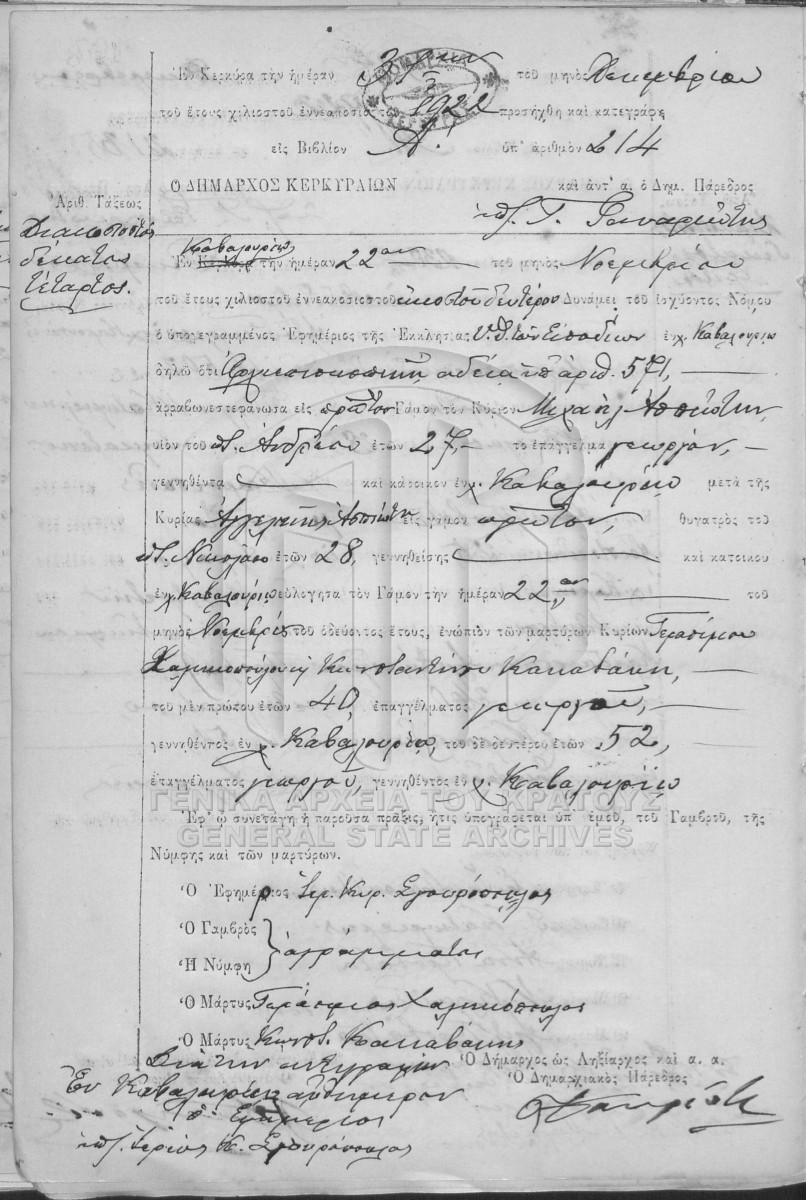 Ἐν Κερκύρᾳ τὴν ἡμέραν 3 τοῦ μηνὸς Δεκεμβρίου
τοῦ ἔτους χιλιοστοῦ ἐννεακοσιοστοῦ 1922 προσήχθη καὶ κατεγράφη
εἰς Βιβλίον Α! ὑπ' ἀριθμὸν 214
Ο ΔΗΜΑΡΧΟΣ ΚΕΡΚΥΡΑΙΩΝ καὶ ἀντ' α. ὁ Δημ. Πάρεδρος
Ἀριθ. Τάξεως
Διακοσιοστὸς
δέκατος
τέταρτος.
Καβαλουρίῳ
Ἐν Κερκύρᾳ τὴν ἡμέραν 22αν τοῦ μηνὸς Νοεμβρίου
τοῦ ἔτους χιλιοστοῦ ἐννεακοσιοστοῦ εἰκοστοῦ δευτέρου Δυνάμει τοῦ ἰσχύοντος Νόμου
ὁ ὑπογεγραμμένος Ἐφημέριος τῆς Ἐκκλησίας Υ. Θ. τῶν Εἰσοδίων ἐν χ. Καβαλουρίῳ
δηλῶ ὅτι Ἀρχιεπισκοπικῇ ἀδείᾳ ὑπ' ἀριθ. 571,
ἀρραβωνεστεφάνωσα εἰς πρῶτον Γάμον τὸν Κύριον Μιχαὴλ Ἀσπιώτην,
υἱὸν τοῦ π. Ἀνδρέου ἐτῶν 27, τὸ ἐπάγγελμα γεωργὸν,
γεννηθέντα καὶ κάτοικον ἐν χ. Καβαλουρίῳ μετὰ τῆς
Κυρίας Ἀγγελικῆς Ἀσπιώτη εἰς γάμον πρῶτον, θυγατρὸς τοῦ
π. Νικολάου ἐτῶν 28, γεννηθείσης καὶ κατοίκου
ἐν χ. Καβαλουρίῳ εὐλόγησα τὸν Γάμον τὴν ἡμέραν 22αν τοῦ
μηνὸς Νοεμβρίου τοῦ ὁδεύοντος ἔτους, ἐνώπιον τῶν μαρτύρων Κυρίων Γερασίμου
Χαλικιοπούλου ἢ Κωνσταντίνου Κακαβάκη,
τοῦ μὲν πρώτου ἐτῶν 40, ἐπαγγέλματος γεωργοῦ,
γεννηθέντος ἐν χ. Καβαλουρίῳ, τοῦ δὲ δευτέρου ἐτῶν 52,
ἐπαγγέλματος γεωργοῦ, γεννηθέντος ἐν χ. Καβαλουρίῳ
ΓΕΝΙΚΑ ΑΡΧΕΙΑ ΤΟΥ ΚΡΑΤΟΥΣ
GENERAL STATE ARCHIVES
Ἐφ' ᾧ συνετάγη ἡ παροῦσα πρᾶξις, ἥτις ὑπογράφεται ὑπ' ἐμοῦ, τοῦ Γαμβροῦ, τῆς
Νύμφης καὶ τῶν μαρτύρων.
Ὁ Ἐφημέριος Ἱερ. Κυρ. Σγουρόπουλος
Ὁ Γαμβρὸς
ἀγράμματοι
Ἡ Νύμφη
Ὁ Μάρτυς Γεράσιμος Χαλικιόπουλος
Ὁ Μάρτυς Κωνστ. Κακαβάκης
Διὰ τὴν ἀντιγραφὴν
Ὁ Δήμαρχος ὡς Ληξίαρχος καὶ α. α.
Ὁ Δημαρχιακὸς Πάρεδρος
Ἐν Καβαλουρίῳ αὐθημερὸν
ὁ Ἐφημέριος
Ἱερεὺς Κ. Σγουρόπουλος